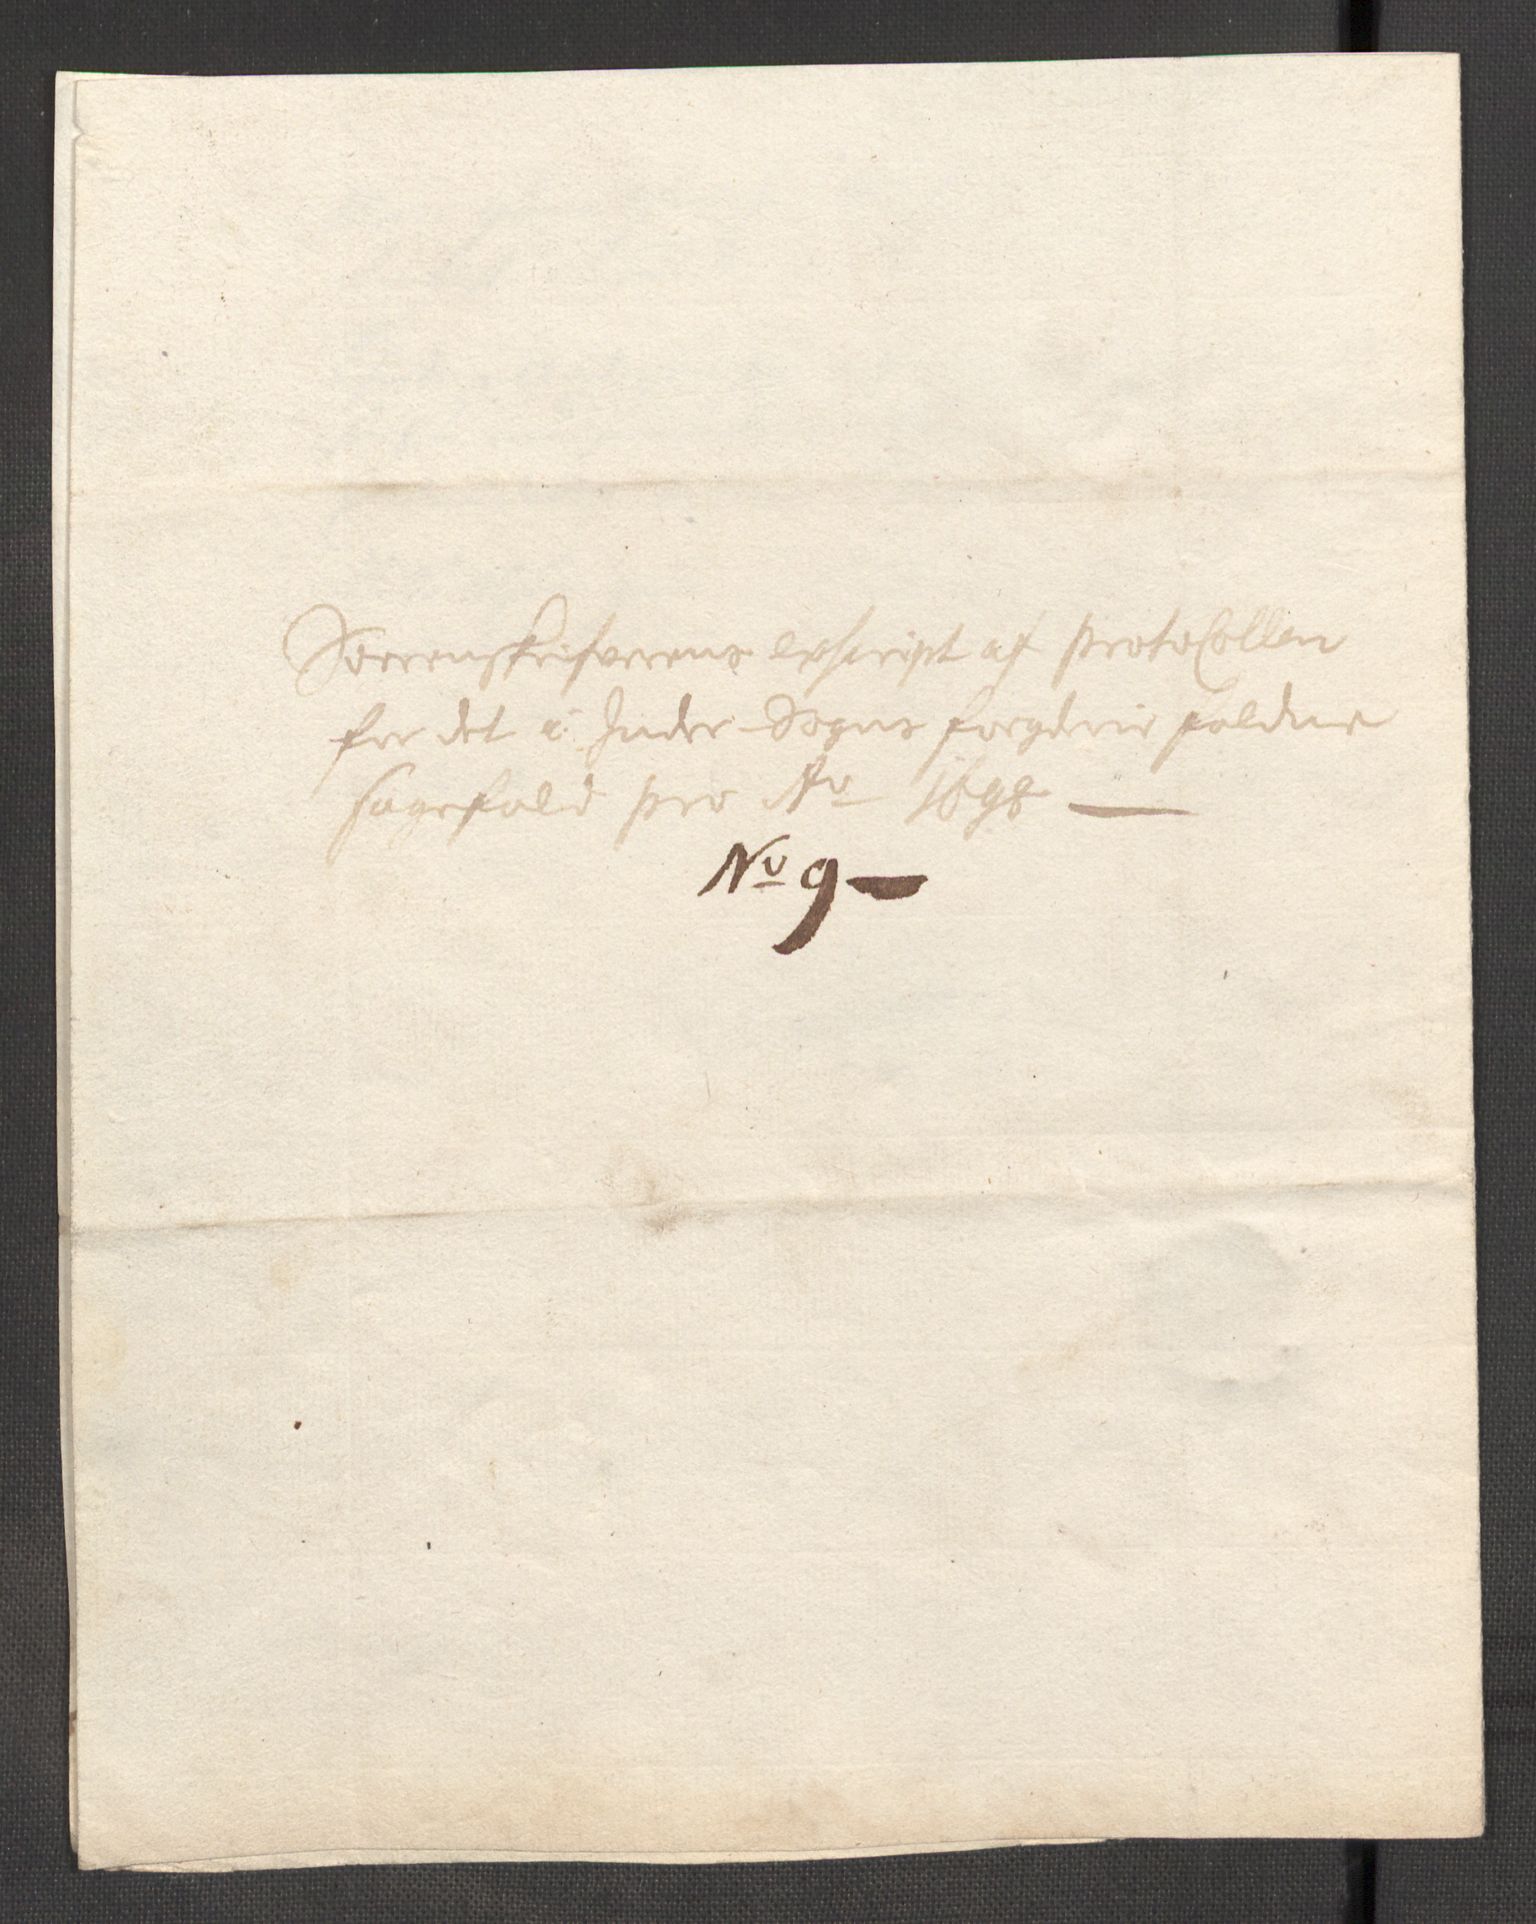 Sorrenskrifverens exstript af protocollen
for det i Inder Sogns fogderie faldne
sagefald pro Ao 1698
No 9